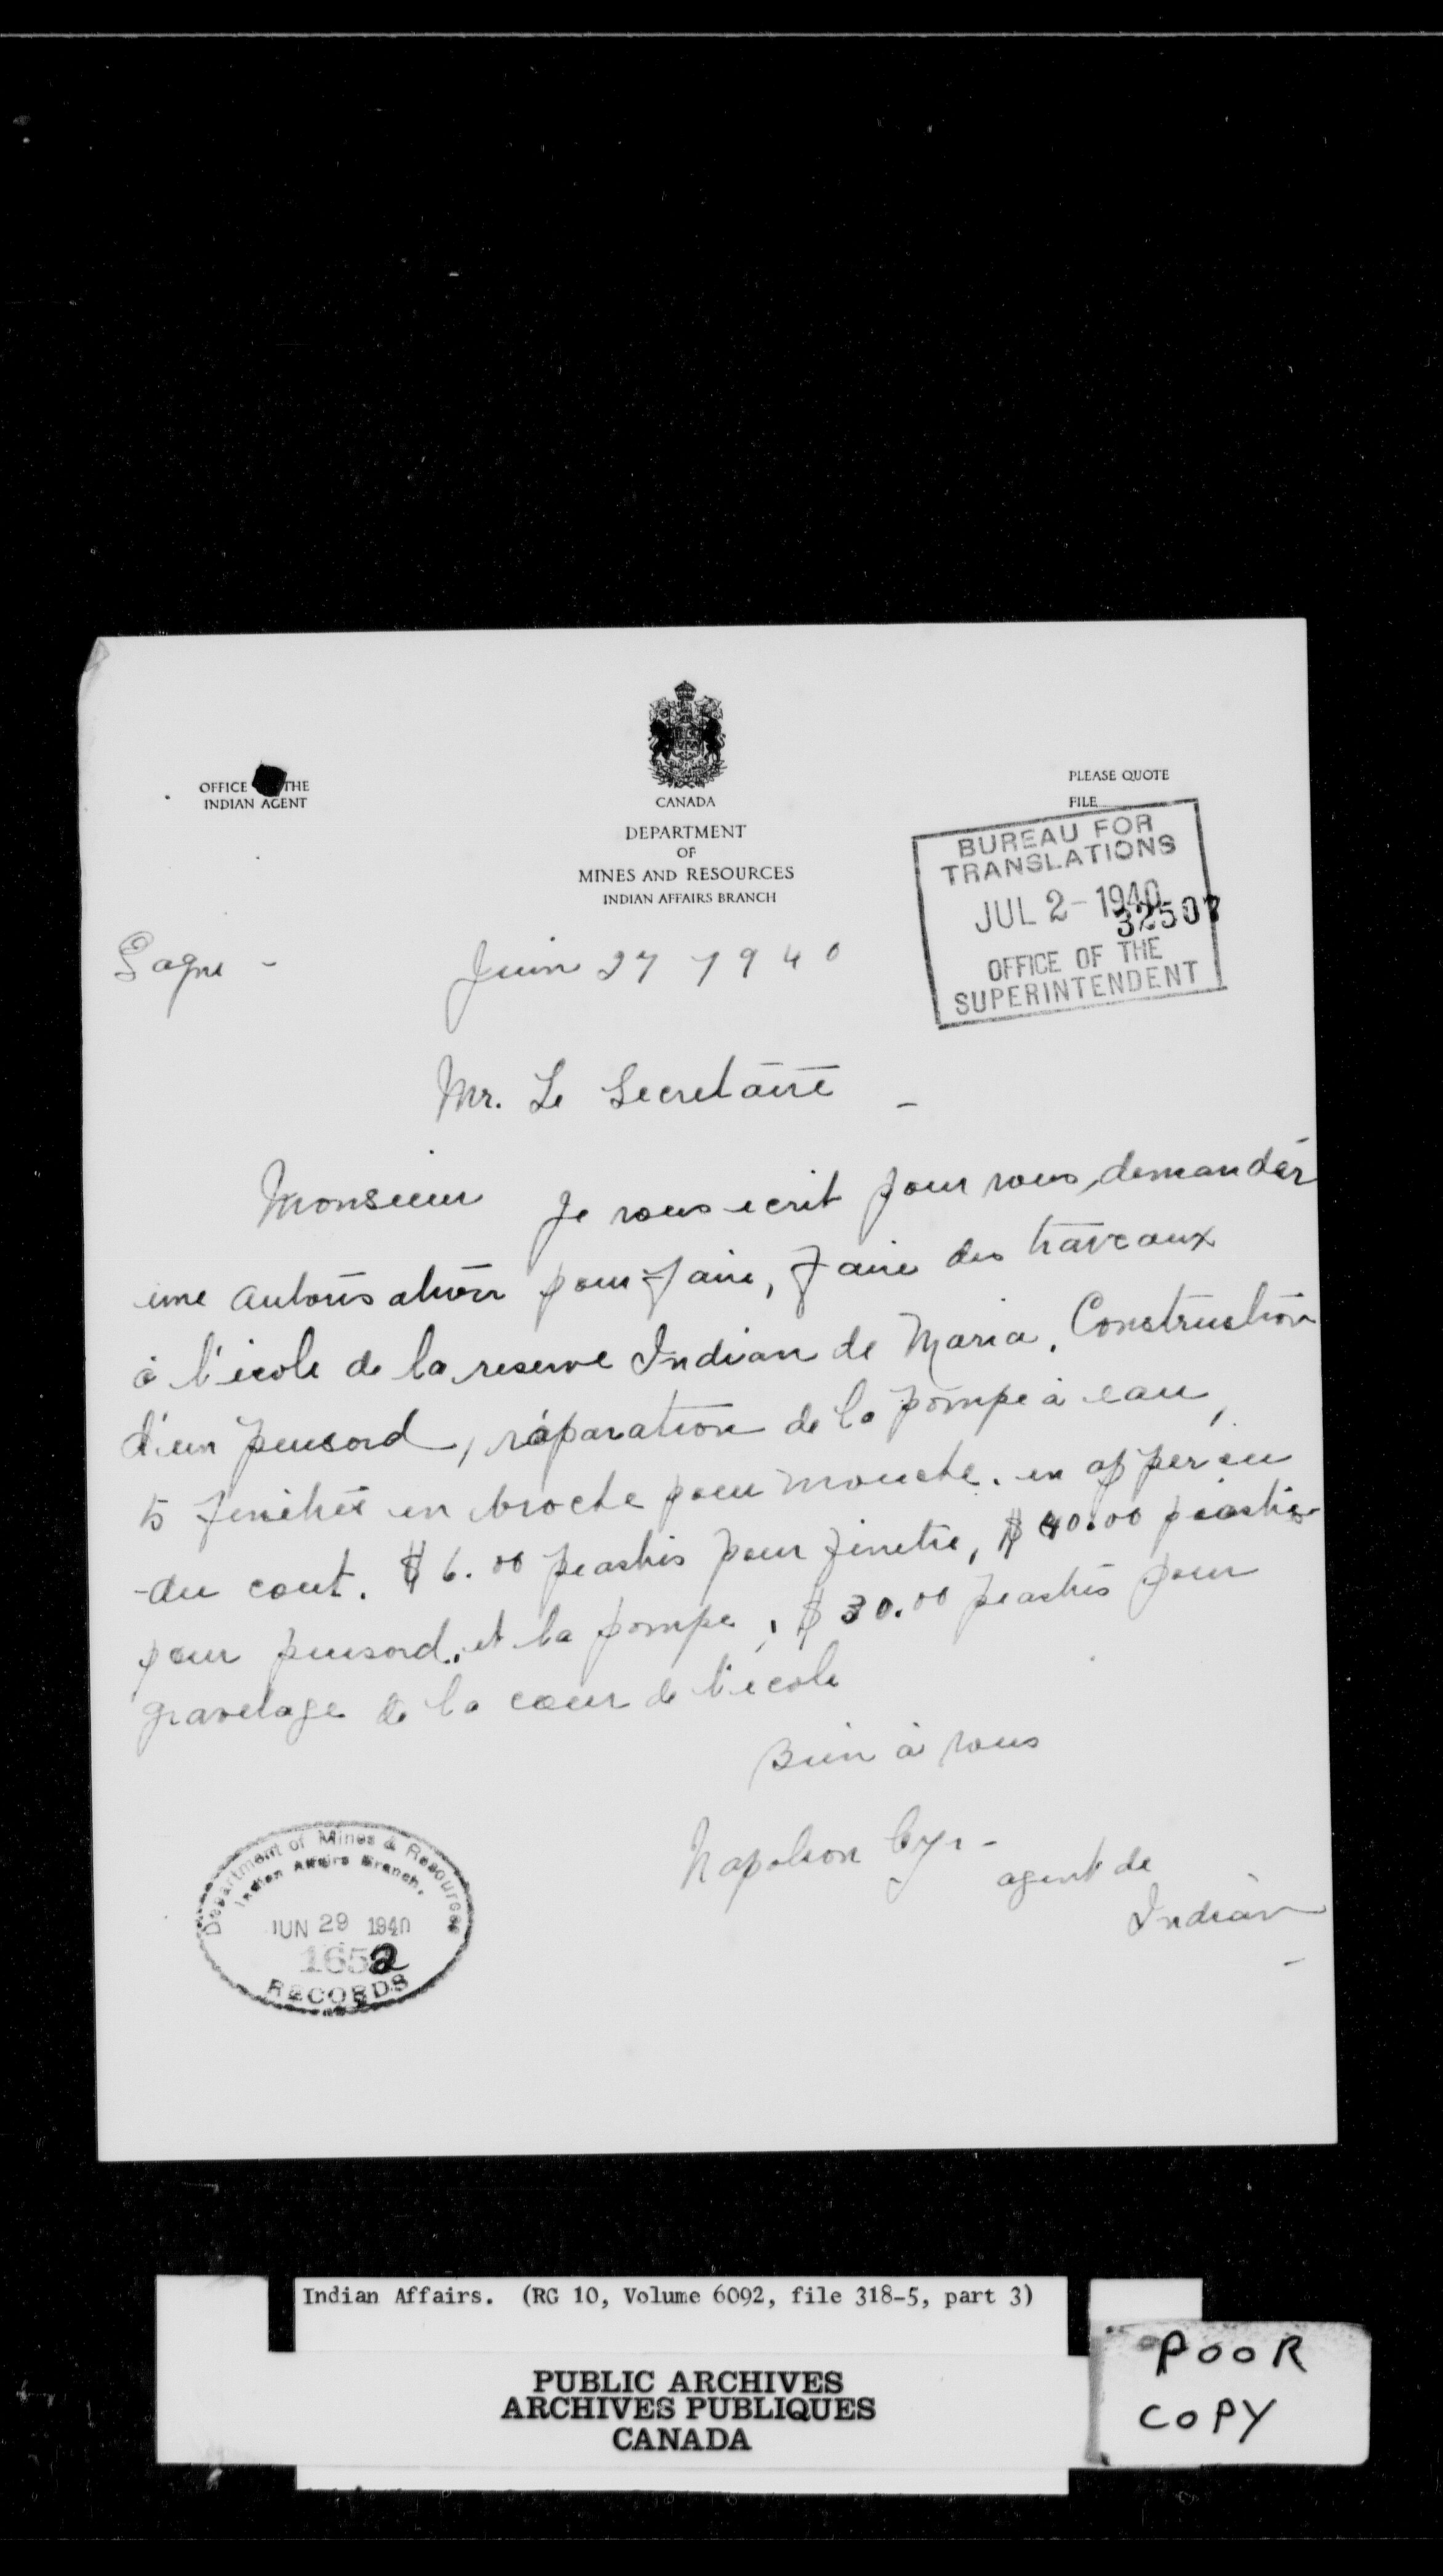 OFFICE THE
INDIAN AGENT
CANADA
DEPARTMENT
OF
MINES AND RESOURCES
INDIAN AFFAIRS BRANCH
PLEASE QUOTE
FILE
BUREAU FOR
TRANSLATIONS
JUL 2 - 1940
32507
OFFICE OF THE
SUPERINTENDENT
Gagne - Juin 27 1940
Mr. Le Secretaire -
Monsieur Je vous ecrit pour vous, demander
une autorisation pour faire, faire des traveaux
à l'école de la reserve Indian de Maria. Construction
d'un puisord, réparation de la pompe à eau,
5 fenêtre en broche pour mouche. en apperçu
du cout. $ 6.00 piastres pour finetre, $ 40.00 piastres
pour puisord, et la pompe, $ 30.00 piastres pour
gravelage de la coeur de l'école
Bien à vous
Napoleon Cyr -
agent de
Indian
-
Department of Mines & Resources
Indian Affairs Branch.
JUN 29 1940
1652
RECORDS
Indian Affairs. (RG 10, Volume 6092, file 318-5, part 3)
PUBLIC ARCHIVES
ARCHIVES PUBLIQUES
CANADA
POOR
COPY